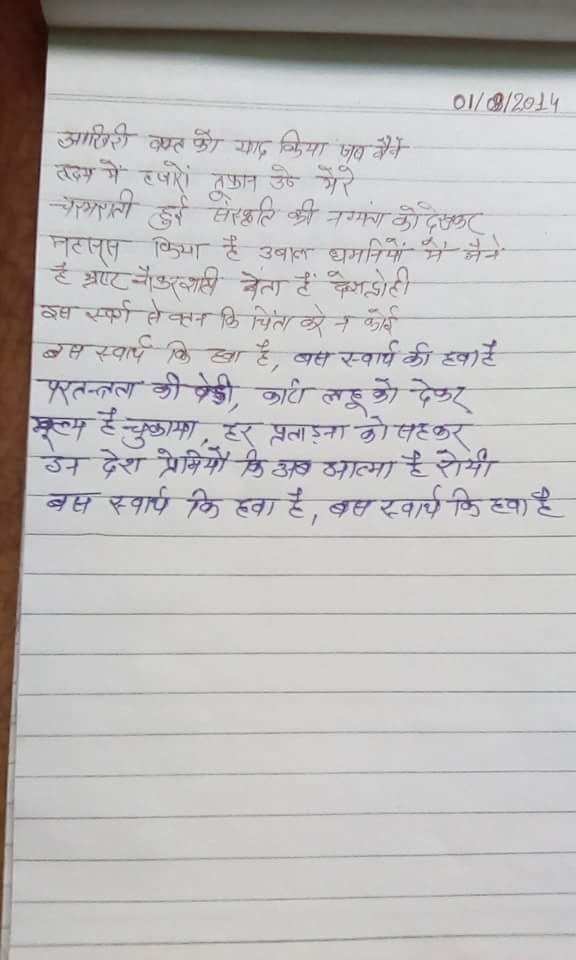 01/08/2014
आखिरी वक्त को याद किया जब मैंने
हृदय में हजारों तूफान उठे मेरे
चरमराती हुई संस्कृति की नग्नता को देखकर
महसूस किया है उबाल धमनियों में मैंने
है भ्रष्ट नौकरशाही नेता हैं देशद्रोही
इस स्वर्ण से वतन कि चिंता करे न कोई
बस स्वार्थ कि हवा है, बस स्वार्थ की हवा है
परतन्त्रता की बेड़ी, काटी लहू को देकर
मूल्य है चुकाया, हर प्रताड़ना को सहकर
उन देश प्रेमियों कि अब आत्मा है रोयी
बस स्वार्थ कि हवा है, बस स्वार्थ कि हवा है